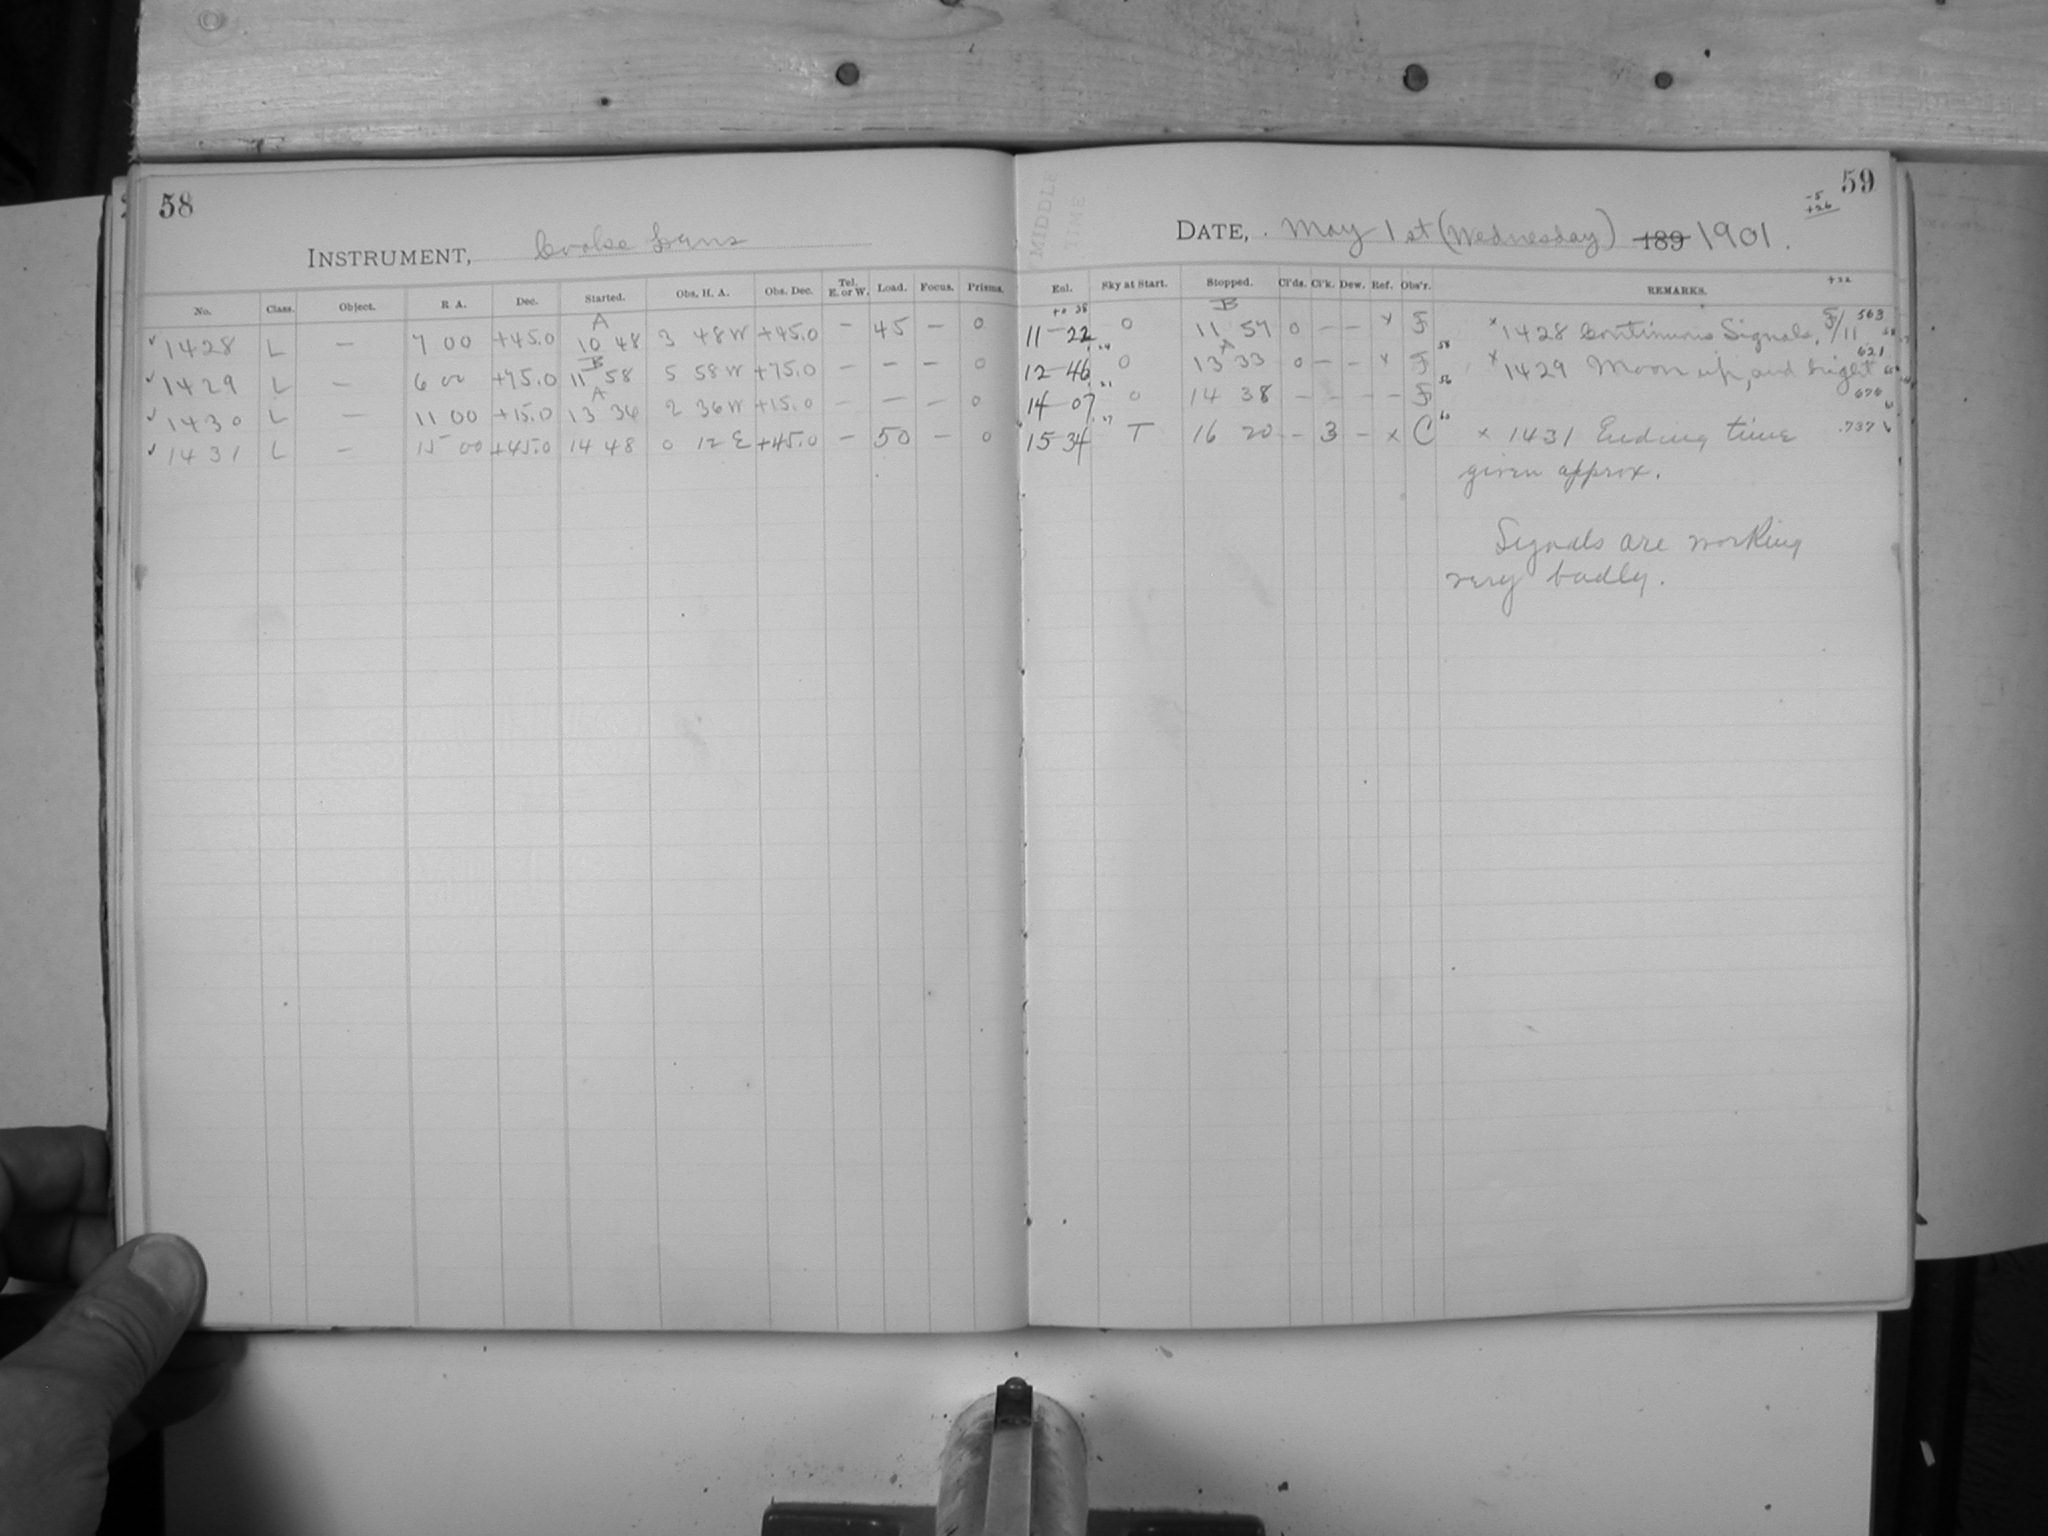 58
INSTRUMENT, Cooke Lens
No. Class. Object. R. A. Dec. Started. Obs. H. A. Obs. Dec. Tel. E. or W. Load. Focus. Prisms.
A
1428 L — 7 00 +45.0 10 48 3 48 W +45.0 — 45 — 0
B
1429 L — 6 00 +75.0 11 58 5 58 W +75.0 — — — 0
A
1430 L — 11 00 +15.0 13 36 2 36 W +15.0 — — — 0
1431 L — 15 00 +45.0 14 48 0 12 E +45.0 — 50 — 0
59
-5
+26
MIDDLE
TIME
DATE, May 1st (Wednesday) 189 1901.
Enl. Sky at Start. Stopped. Cl'ds. Cl'k. Dew. Ref. Obs'r. REMARKS. +22
B
11-22 0 11 57 0 — — x F x 1428 Continuous Signals, F/11 563
A
12-46 0 13 33 0 — — x F 58 x 1429 Moon up, and bright 621
14-07 0 14 38 — — — — F 56
15-34 T 16 20 — 3 — x C 60 x 1431 Ending time .737
given approx.
Signals are working
very badly.